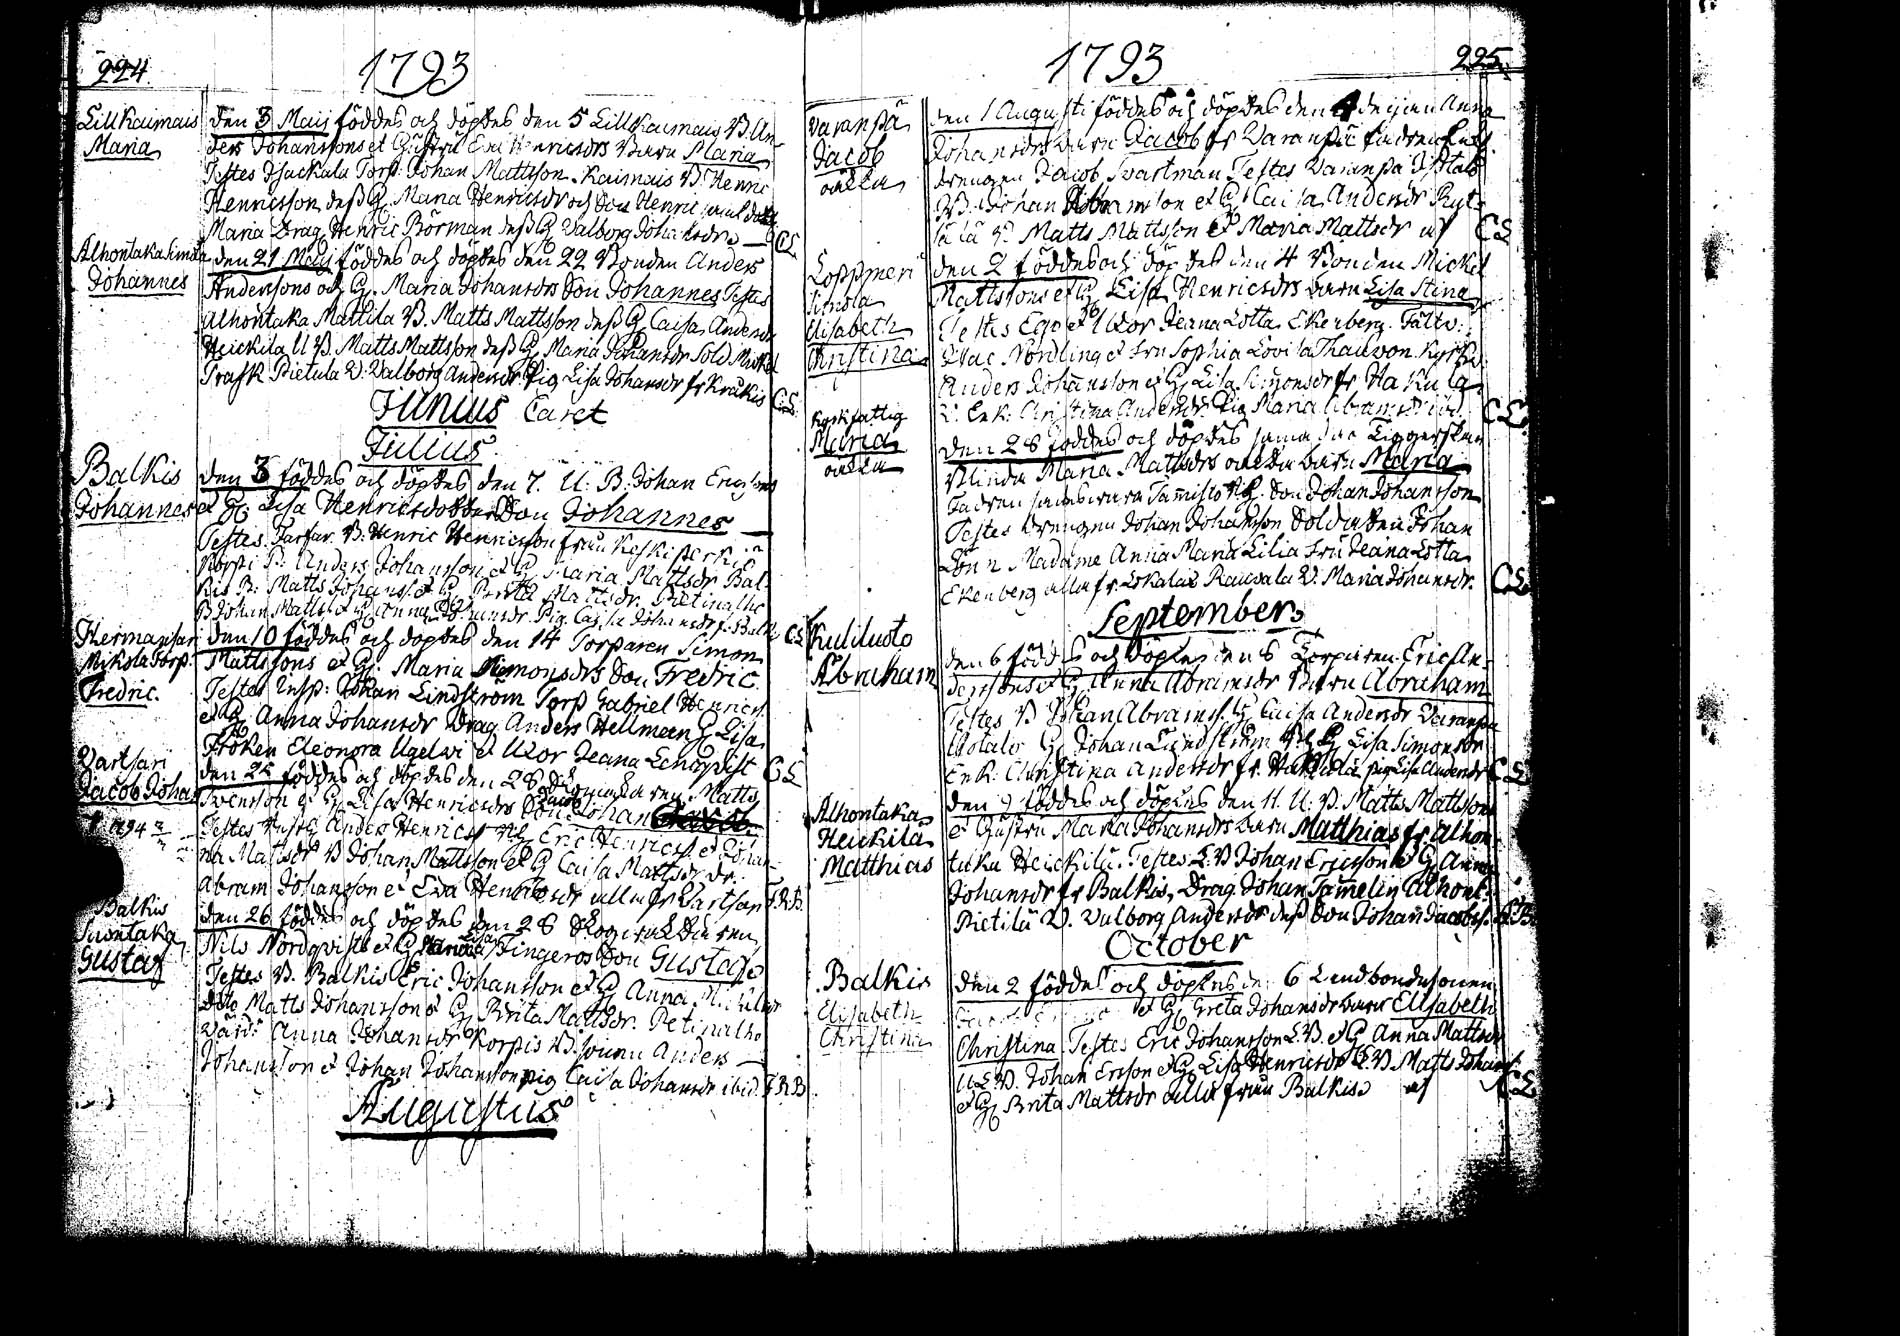 224
1793
Lillkaimais
Maria
den 3 Maij föddes och döptes den 5 Lillkaimais B. An-
ders Johanssons et Hustru Eva Henricsdrs barn Maria
Testes Isackala Torp: Johan Mattsson. Kaimais B. Henric
Henricsson, dess H. Maria Henricsdr och Son Henric samt dottr
Maria Drag. Henric Börman dess H. Valborg Johansdr
CL
Alhontaka Simola
Johannes
den 21 Maij föddes och döptes den 22 Bonden Anders
Anderssons och H. Maria Johansdrs Son Johannes Testes
Alhontaka Mattila B. Matts Mattsson dess H. Caisa Andersdr
Heickilä U B. Matts Mattsson dess H. Maria Johansdr Sold. Mickel
Trast Pietula V. Valborg Andersdr Pig. Lisa Johansdr fr Krukis
CL
Junius Caret
Julius
Balkis
Johannes
den 3 föddes och döptes den 7. U. B. Johan Ericssons
et H. Lisa Henricsdotters Son Johannes
Testes Farfar B. Henric Henricsson från Keskiperkiö
Korpi B. Anders Johansson et H. Maria Mattsdr Bal-
kis B. Matts Johanss. et H. Brita Mattsdr. Pietinalho
B Johan Matts. et H. Anna Pig. Caisa Johansdr fr. Balkis
CL
Hermansari
Mikola Torp.
Fredric.
den 10 föddes och döptes den 14 Torparen Simon
Mattssons et H. Maria Simonsdrs Son Fredric.
Testes Insp: Johan Lindström Torp Gabriel Henricss.
et H. Anna Johansdr Drag Anders Hellman H. Lisa
Fröken Eleonora Ugelvi et Uxor Jeana Lenqvist
CL
Vartsari
Jacob Johan
1794
den 25 föddes och döptes den 28 Matts
Svensson et H. Lisa Henricsdrs Son Jacob Johan
Testes Anders Henricss Eric Henricss. et Joha-
na Mattsdr B Johan Mattsson et H Caisa Mattsdr dr.
Abram Johansson et Eva Henricsdr alla fr Vartsari
F.R.B.
Balkis
Suontaka
Gustaf
den 26 föddes och döptes den 28 Skogsvaktaren
Nils Nordqvists et H. Lisa Fingeros Son Gustaf
Testes B. Balkis Eric Johansson et H Anna
dito Matts Johansson et H Brita Mattsdr. Petinalho
Värd: Anna Johansdr Korpis B. sonen Anders
Johansson et Johan Johansson pig Caisa Johansdr ibid.
F.R.B
Augustus
1793
225
Varanpää
Jacob
oäckta
den 1 Augusti föddes och döptes den 4 de pigan Anna
Johansdrs barn Jacob fr Varanpää fadren Enl.
drengen Jacob Svartman Testes Varanpä Isotalo
B. Johan Abramsson et H Caisa Andersdr Ryt-
sälä B. Matts Mattsson et Maria Mattsdr
CL
Loppmeri
Simola
Elisabeth
Christina
den 2 föddes och döptes den 4 Bonden Mickel
Mattssons et H Lisa Henricsdrs barn Lisa Stina
Testes Ego et Uxor Jeana Lotta Ekerberg. Fältv:
Isac Nordling et Fru Sophia Lovisa Thauvon. Kyrkv.
Anders Johansson et H. Lisa Simonsdr fr Hakula
Enk: Christina Andersdr Pig Maria Abramsdr ibid.
CL
Kyrkfattig
Maria
oäckta
den 28 föddes och döptes samma dag Tiggerskan
Blinda Maria Mattsdrs oäckta barn Maria
Fadren Tamisto Son Johan Johansson
Testes drengen Johan Johansson Soldaten Johan
Lönn Madame Anna Maria Lilia Fru Jeana Lotta
Ekenberg alla fr Lokalax Rauvala V. Maria Johansdr.
CL
September
Kuliluoto
Abraham
den 6 föddes och döptes den 8 Torparen Eric An-
derssons et H Anna Abramsdr barn Abraham
Testes B Johan Abramss. H Caisa Andersdr Varanpä
Isotalo H Johan Lindström H Lisa Simonsdr
Enk: Christina Andersdr fr. Hakula pig Lisa Andersdr
CL
Alhontaka
Heickilä
Matthias
den 9 föddes och döptes den 11. U: B. Matts Mattssons
et Hustru Maria Johansdrs barn Matthias fr. Alhon-
taka Heickilä. Testes L B Johan Ericsson et H. Anna
Johansdr fr Balkis, Drag Johan Tamelin Alhont.
Pietilä V. Valborg Andersdr dess Son Johan Jacobss.
October
Balkis
Elisabeth
Christina
den 2 föddes och döptes den 6 Landbondesonen
et H Greta Johansdr barn Elisabeth
Christina Testes Eric Johansson L.B. et H Anna Mattsdr
U L B. Johan Ersson et H Lisa Henricsdr L.B. Matts Johanss.
et H Brita Mattsdr alla från Balkis
CL